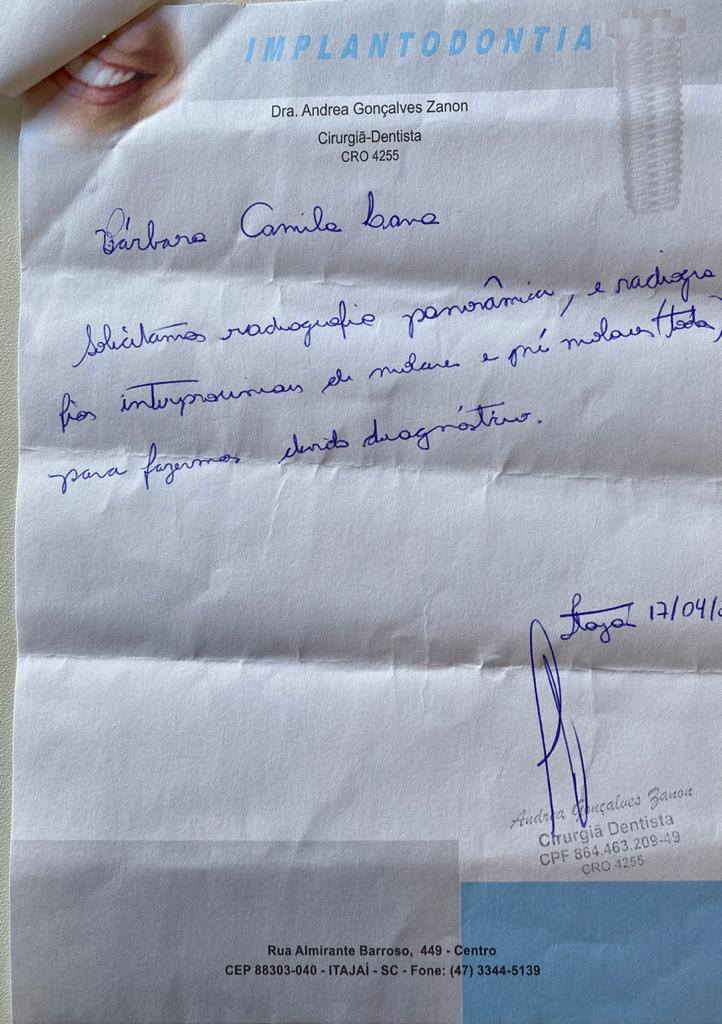 IMPLANTODONTIA
Dra. Andrea Gonçalves Zanon
Cirurgiã-Dentista
CRO 4255
Bárbara Camila
Solicitamos radiografia panorâmica, e radiogra
fias interproximais de molares e pré molares (todas)
para fazermos devido diagnóstico.
Itajaí 17/04/
Andrea Gonçalves Zanon
Cirurgiã Dentista
CPF 864.463.209-49
CRO 4255
Rua Almirante Barroso, 449 - Centro
CEP 88303-040 - ITAJAÍ - SC - Fone: (47) 3344-5139